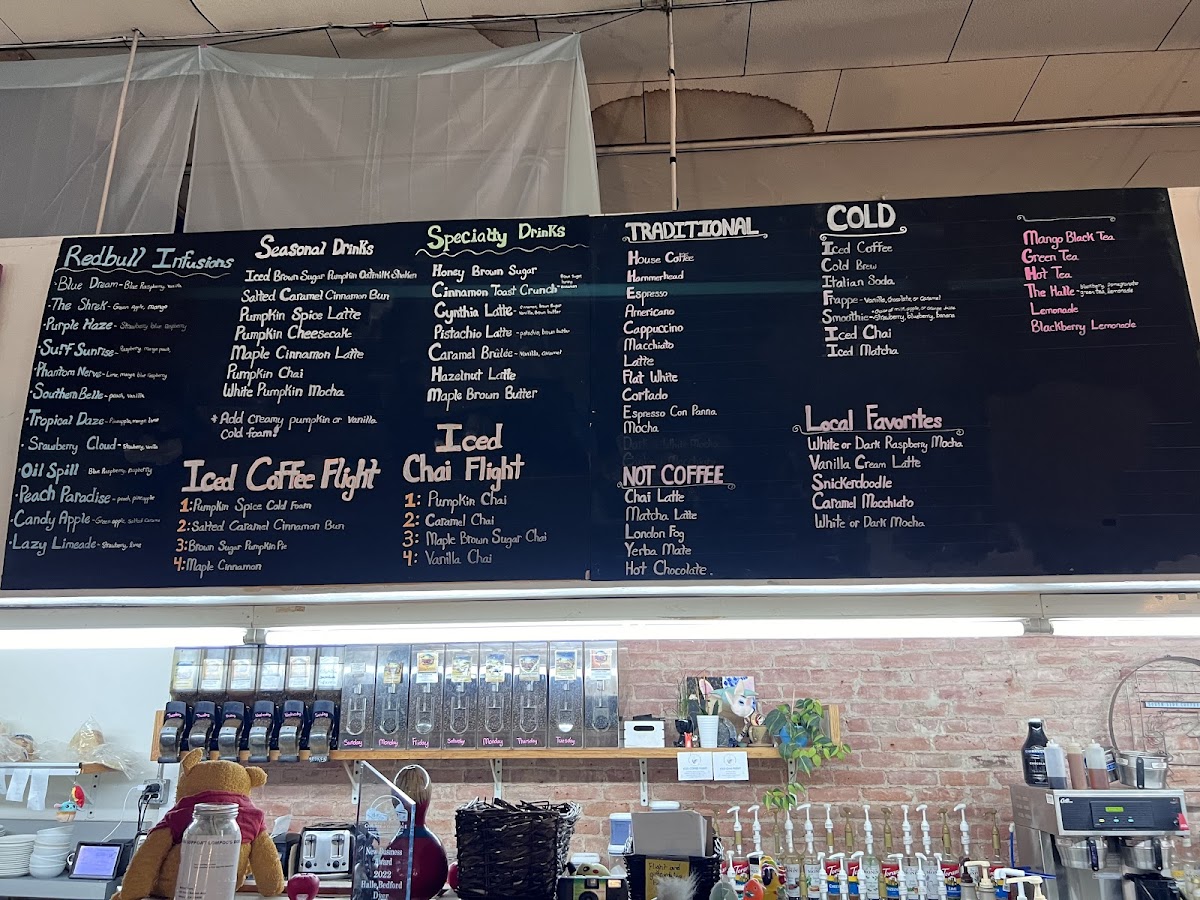 Redbull Infusions
·Blue Dream - Blue Raspberry, vanilla
·The Shrek - Green Apple, mango
·Purple Haze - Strawberry, blue Raspberry
·Surf Sunrise - Raspberry, mango, peach,
·Phantom Nerve - Lime, mango, blue Raspberry
·Southern Belle - peach, vanilla
·Tropical Daze - Pineapple, mango, lime
·Srawberry Cloud - Strawberry, vanilla
·Oil Spill Blue Raspberry, Raspberry
·Peach Paradise - peach, pineapple
·Candy Apple - Green apple, Salted Caramel
·Lazy Limeade - Strawberry, lime
Seasonal Drinks
Iced Brown Sugar Pumpkin Oatmilk Shaken
Salted Caramel Cinnamon Bun
Pumpkin Spice Latte
Pumpkin Cheesecake
Maple Cinnamon Latte
Pumpkin Chai
White Pumpkin Mocha
* Add creamy pumpkin or Vanilla
cold foam!
Iced Coffee Flight
1: Pumpkin Spice Cold Foam
2: Salted Caramel Cinnamon Bun
3: Brown Sugar Pumpkin Pie
4: Maple Cinnamon
Specialty Drinks
Honey Brown Sugar
Cinnamon Toast Crunch
Cynthia Latte - Cinnamon, Brown Sugar, Vanilla, Brown butter
Pistachio Latte - pistachio, brown butter
Caramel Brûlée - Vanilla, caramel
Hazelnut Latte
Maple Brown Butter
Iced
Chai Flight
1: Pumpkin Chai
2: Caramel Chai
3: Maple Brown Sugar Chai
4: Vanilla Chai
TRADITIONAL
House Coffee
Hammerhead
Espresso
Americano
Cappuccino
Macchiato
Latte
Flat White
Cortado
Espresso Con Panna
Mocha
NOT COFFEE
Chai Latte
Matcha Latte
London Fog
Yerba Mate
Hot Chocolate.
COLD
Iced Coffee
Cold Brew
Italian Soda
Frappe - Vanilla, chocolate, or Caramel
Smoothie - Choice of milk, apple, or orange juice
Strawberry, blueberry, banana
Iced Chai
Iced Matcha
Local Favorites
White or Dark Raspberry Mocha
Vanilla Cream Latte
Snickerdoodle
Caramel Macchiato
White or Dark Mocha
Mango Black Tea
Green Tea
Hot Tea
The Halle - blueberry, pomegranate
green tea, lemonade
Lemonade
Blackberry Lemonade
Sunday
Monday
Friday
Saturday
Monday
Thursday
Tuesday
New Business
Award
2022
Halle Bedford
Dyer
Torani